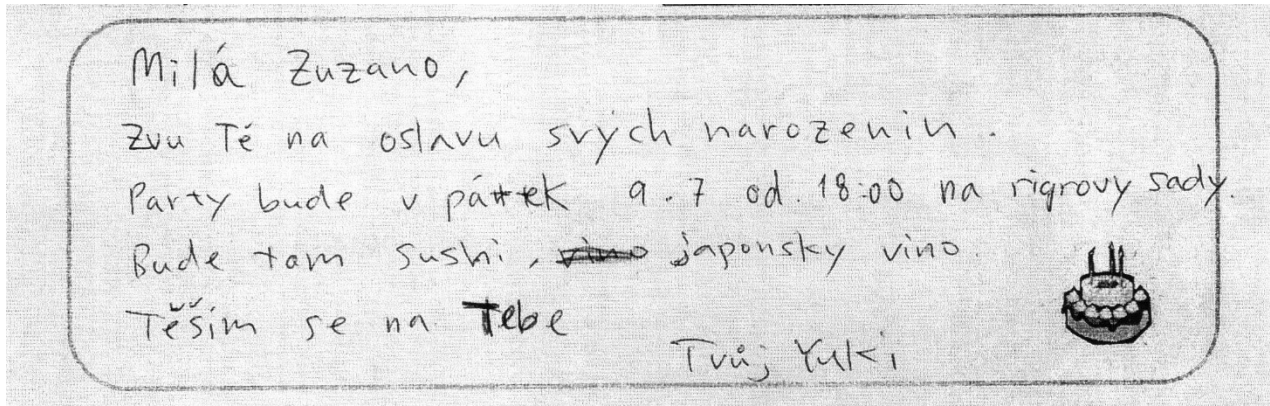 Milá Zuzano,
Zvu Tě na oslavu svých narozenin.
Party bude v páttek 9.7 od. 18:00 na rigrovy sady.
Bude tam sushi, vino japonsky vino.
Těším se na Tebe
Tvůj Yuki